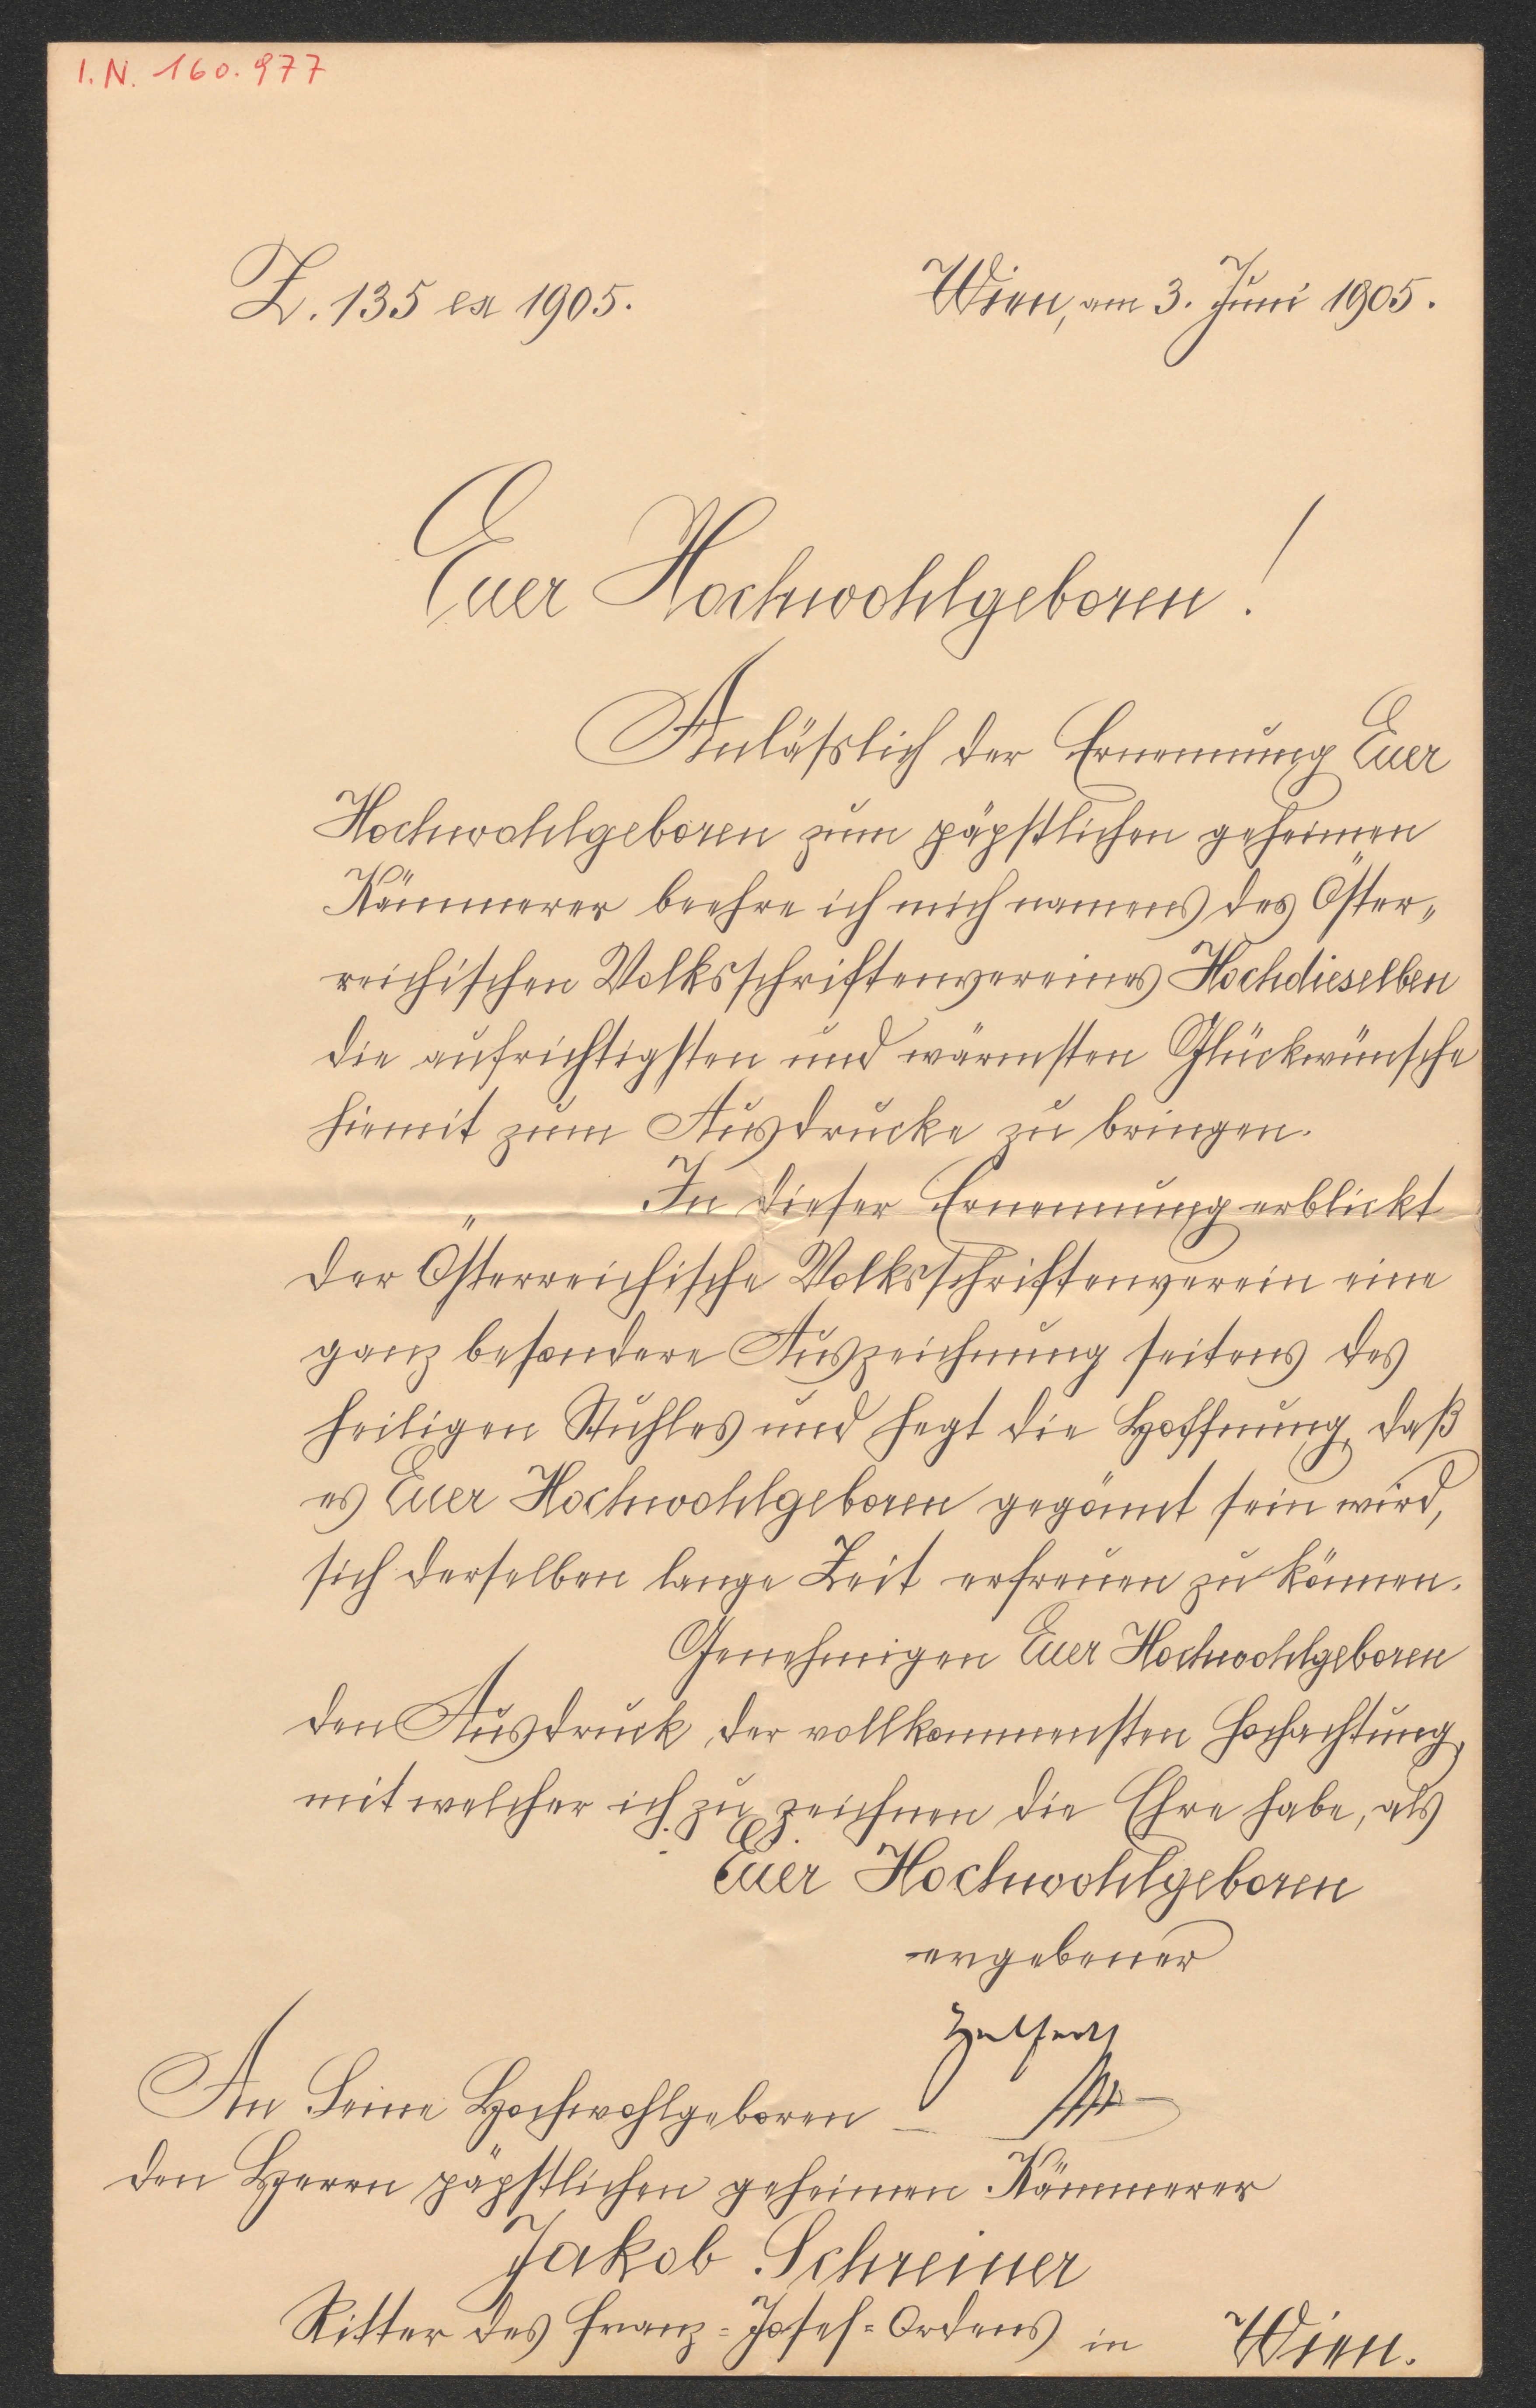 I.N. 160.977
Z. 135 ex 1905.
Wien, am 3. Juni 1905.
Euer Hochwohlgeboren!
Anläßlich der Ernennung Euer
Hochwohlgeboren zum päpstlichen geheimen
Kämmerer beehre ich mich namens des Öster-
reichischen Volksschriftenvereines Hochdieselben
die aufrichtigsten und wärmsten Glückwünsche
hiemit zum Ausdrucke zu bringen.
In dieser Ernennung erblickt
der Österreichische Volksschriftenverein eine
ganz besondere Auszeichnung seitens des
heiligen Stuhles und hegt die Hoffnung, daß
es Euer Hochwohlgeboren gegönnt sein wird,
sich derselben lange Zeit erfreuen zu können.
Genehmigen Euer Hochwohlgeboren
den Ausdruck der vollkommensten Hochachtung,
mit welcher ich zu zeichnen die Ehre habe, als
Euer Hochwohlgeboren
ergebener
Helfert
An Seine Hochwohlgeboren
den Herrn päpstlichen geheimen Kämmerer
Jakob Schreiner
Ritter des Franz-Josef-Ordens in Wien.